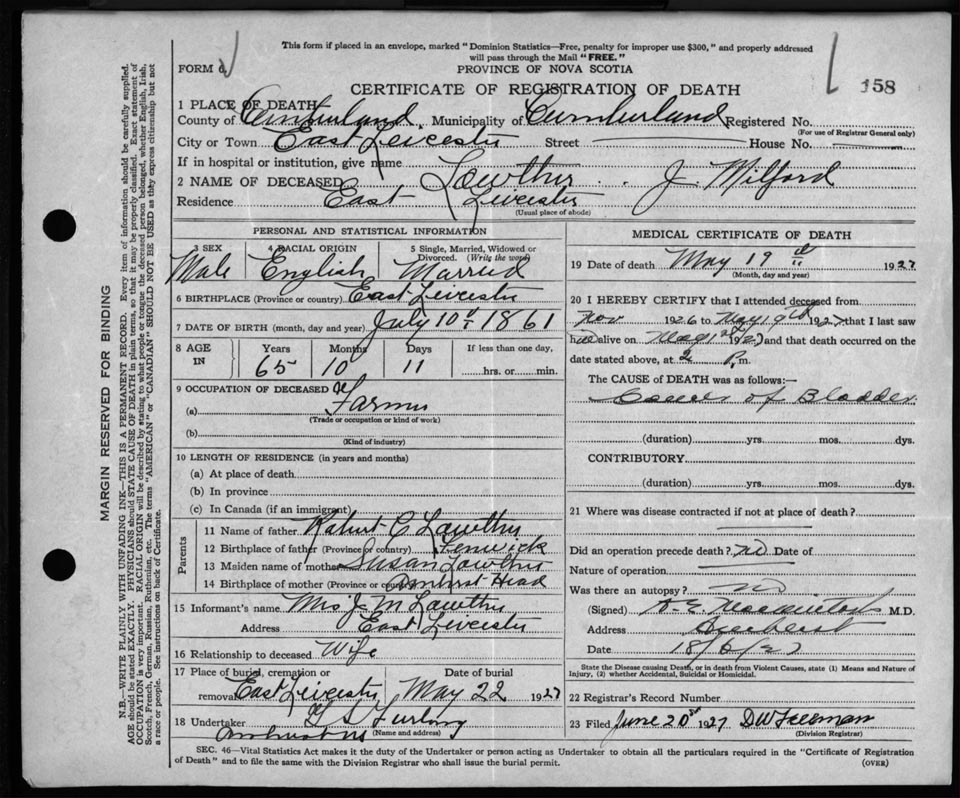 This form if placed in an envelope, marked "Dominion Statistics—Free, penalty for improper use $300," and properly addressed
will pass through the Mail "FREE."
FORM 6
PROVINCE OF NOVA SCOTIA
158
CERTIFICATE OF REGISTRATION OF DEATH
1 PLACE OF DEATH
County of Cumberland Municipality of Cumberland Registered No.
(For use of Registrar General only)
City or Town East Leicester Street House No.
If in hospital or institution, give name
2 NAME OF DECEASED Lowther J. Milford
Residence East Leicester
(Usual place of abode)
PERSONAL AND STATISTICAL INFORMATION
3 SEX 4 RACIAL ORIGIN 5 Single, Married, Widowed or
Divorced. (Write the word)
Male English Married
6 BIRTHPLACE (Province or country) East Leicester
7 DATE OF BIRTH (month, day and year) July 10th 1861
8 AGE IN Years Months Days If less than one day,
65 10 11 hrs. or min.
9 OCCUPATION OF DECEASED
(a) Farmer
(Trade or occupation or kind of work)
(b)
(Kind of industry)
10 LENGTH OF RESIDENCE (in years and months)
(a) At place of death
(b) In province
(c) In Canada (if an immigrant)
Parents
11 Name of father Robert C Lowther
12 Birthplace of father (Province or country) Fenwick
13 Maiden name of mother Susan Lowther
14 Birthplace of mother (Province or country) Amherst Head
15 Informant's name Mrs J M Lowther
Address East Leicester
16 Relationship to deceased Wife
17 Place of burial, cremation or Date of burial
removal East Leicester May 22 1927
18 Undertaker G S Furlong
(Name and address)
Amherst NS
MEDICAL CERTIFICATE OF DEATH
19 Date of death May 19th 1927
(Month, day and year)
20 I HEREBY CERTIFY that I attended deceased from
Nov 1926 to May 19th 1927 that I last saw
him alive on May 1927 and that death occurred on the
date stated above, at 2 P. m.
The CAUSE of DEATH was as follows:—
Cancer of Bladder
(duration) yrs. mos. dys.
CONTRIBUTORY
(duration) yrs. mos. dys.
21 Where was disease contracted if not at place of death?
Did an operation precede death? no Date of
Nature of operation
Was there an autopsy? no
(Signed) D. E. Mackintosh M.D.
Address Amherst
Date 18/6/27
State the Disease causing Death, or in death from Violent Causes, state (1) Means and Nature of
Injury, (2) whether Accidental, Suicidal or Homicidal.
22 Registrar's Record Number
23 Filed June 20th 1927 DW Freeman
(Division Registrar)
SEC. 46—Vital Statistics Act makes it the duty of the Undertaker or person acting as Undertaker to obtain all the particulars required in the "Certificate of Registration
of Death" and to file the same with the Division Registrar who shall issue the burial permit. (OVER)
MARGIN RESERVED FOR BINDING
N.B.—WRITE PLAINLY WITH UNFADING INK—THIS IS A PERMANENT RECORD. Every item of information should be carefully supplied.
AGE should be stated EXACTLY. PHYSICIANS should STATE CAUSE OF DEATH in plain terms, so that it may be properly classified. Exact statement of
OCCUPATION is very important. RACIAL ORIGIN will be described by stating to what people or tongue the deceased person belonged, whether English, Irish,
Scotch, French, German, Russian, Ruthenian, etc. The terms "AMERICAN" or "CANADIAN" SHOULD NOT BE USED as they express citizenship but not
a race or people. See instructions on back of Certificate.